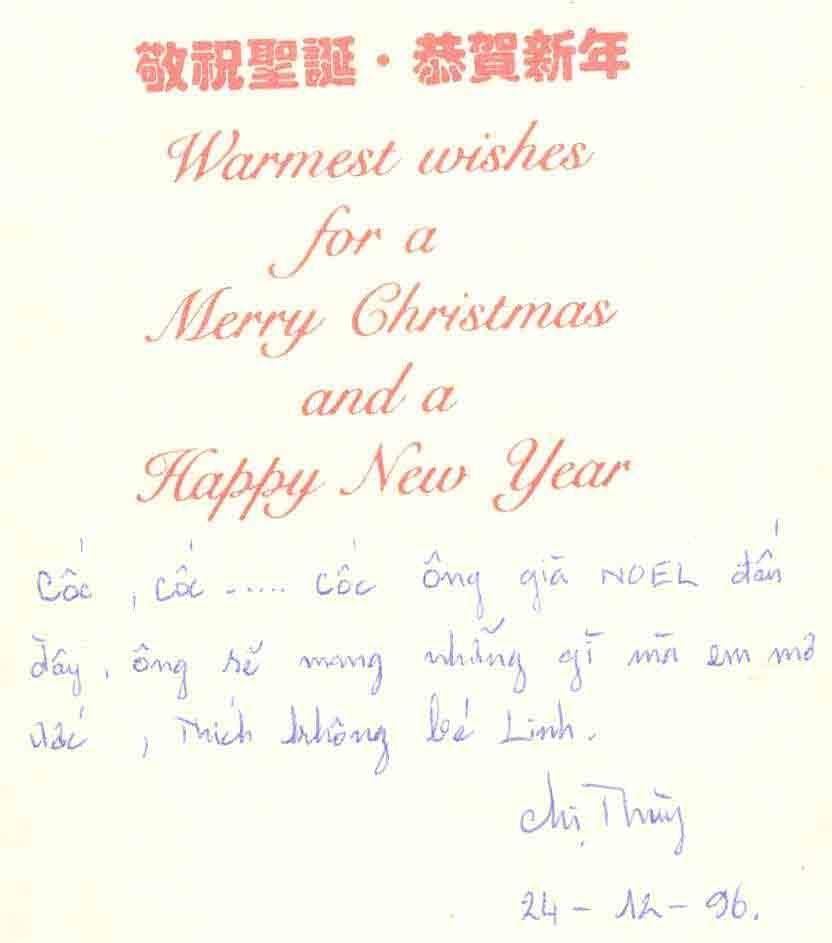 敬祝聖誕・恭賀新年
Warmest wishes
for a
Merry Christmas
and a
Happy New Year
Cốc, cốc ..... cốc ông già NOEL đến
đây, ông sẽ mang những gì mà em mơ
ước, Thích không bé Linh.
chị Thùy
24 - 12 - 96.